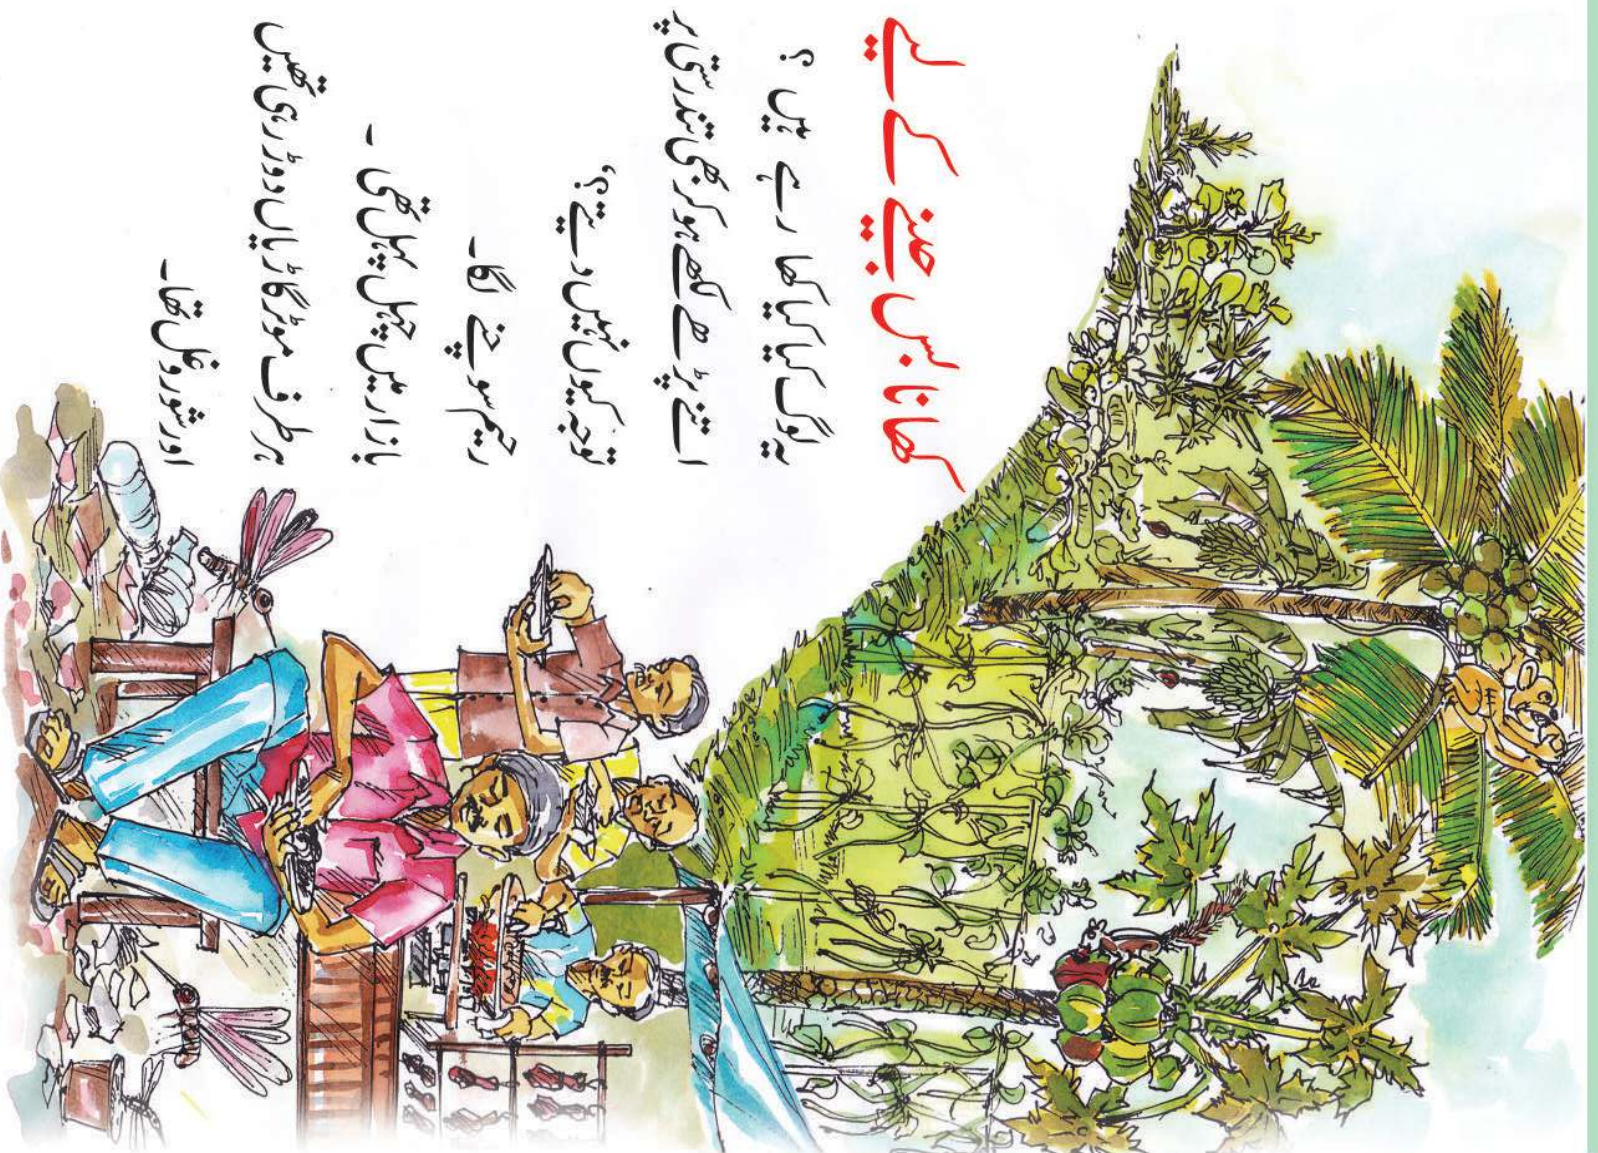 کھانا بس جینے کے لیے
یہ لوگ کیا کیا کھا رہے ہیں ؟
اتنے پڑھے لکھے ہو کر بھی تندرستی پر
توجہ کیوں نہیں دیتے؟‘
رحیم سوچنے لگا۔
بازار میں چہل پہل تھی ۔
ہر طرف موٹر گاڑیاں دوڑ رہی تھیں
اور شور و غل تھا۔